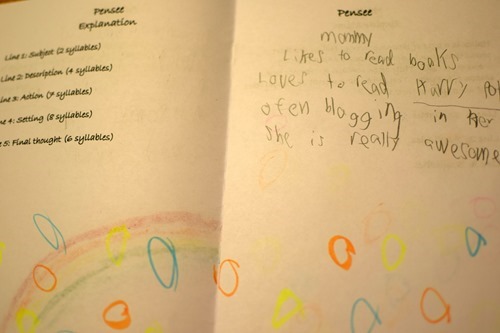 Pensee
Explanation
Line 1: Subject (2 syllables)
Line 2: Description (4 syllables)
Line 3: Action (7 syllables)
ne 4: Setting (8 syllables)
e 5: Final thought (6 syllables)
Pensee
mommy
Likes to read books
Loves to read Harry Pot
often blogging in her
She is really awesome